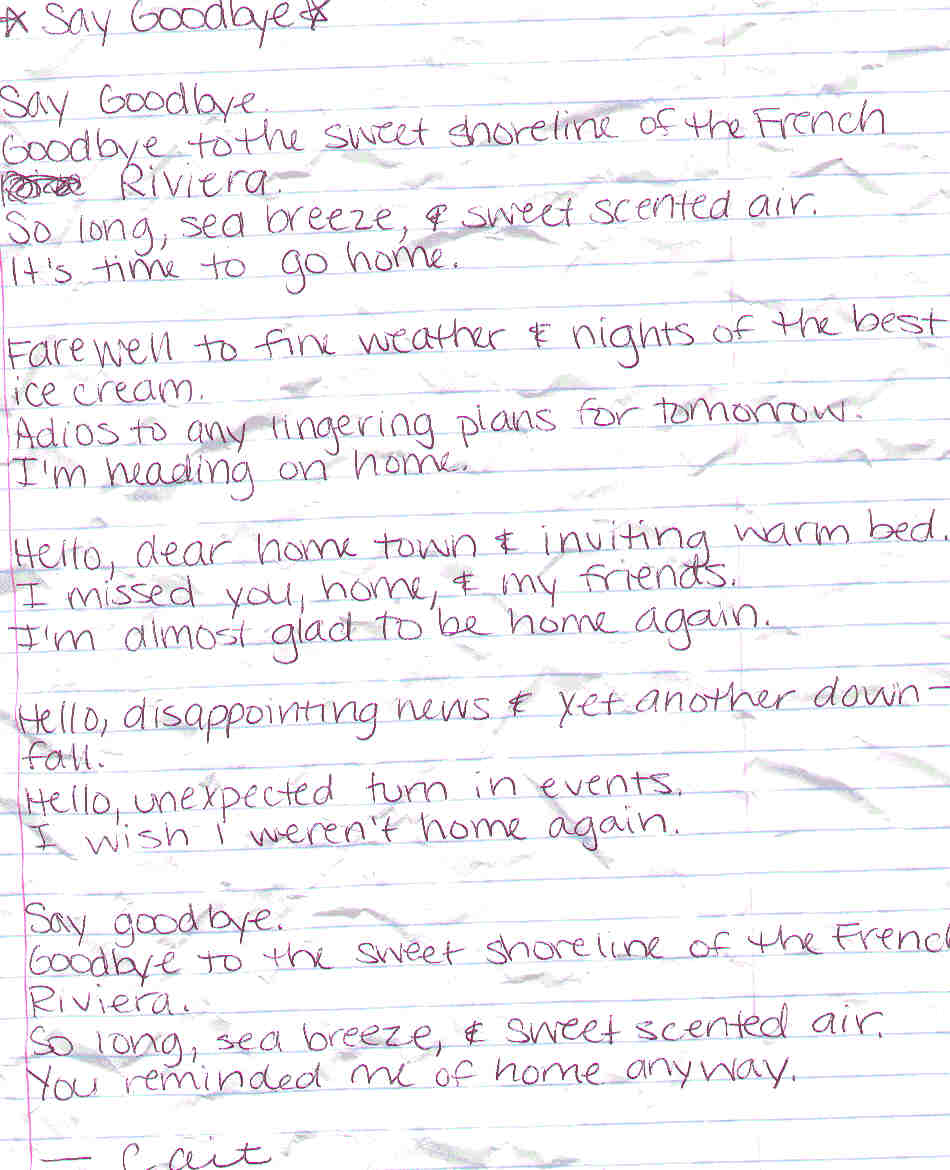 ☆ Say Goodbye ☆
Say Goodbye.
Goodbye to the sweet shoreline of the French
Riviera.
So long, sea breeze, & sweet scented air.
It's time to go home.
Farewell to fine weather & nights of the best
ice cream.
Adios to any lingering plans for tomorrow.
I'm heading on home.
Hello, dear home town & inviting warm bed.
I missed you, home, & my friends.
I'm almost glad to be home again.
Hello, disappointing news & yet another down-
fall.
Hello, unexpected turn in events.
I wish I weren't home again.
Say goodbye.
Goodbye to the sweet shoreline of the French
Riviera.
So long, sea breeze, & sweet scented air.
You reminded me of home anyway.
— Cait